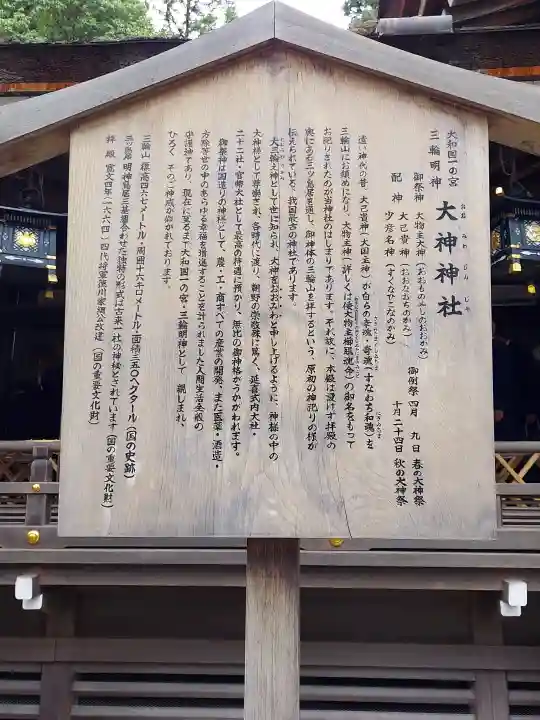 大和国一の宮
三輪明神 大神神社
おおみわじんじゃ
御祭神 大物主大神(おおものぬしのおおかみ)
配神 大己貴神(おおなむちのかみ)
少彦名神(すくなひこなのかみ)
御例祭 四月 九日 春の大神祭
十月二十四日 秋の大神祭
遠い神代の昔、大己貴神(大国主神)が自らの幸魂・奇魂(すなわち和魂)を
三輪山にお鎮めになり、大物主神(詳しくは倭大物主櫛𤭖魂命)の御名をもって
お祀りされたのが当神社のはじまりであります。それ故に、本殿は設けず拝殿の
奥にある三ツ鳥居を通し、御神体の三輪山を拝するという、原初の神祀りの様が
伝えられている、我国最古の神社であります。
大三輪之神として世に知られ、大神をおおみわと申し上げるように、神様の中の
大神様として尊崇され、各時代に通り、朝野の崇敬殊に篤く、延喜式内大社・
二十二社・官幣大社として最高の待遇に預かり、無比の御神格がうかがわれます。
御祭神は国造りの神様として、農・工・商すべての産業の開発、また医薬・酒造・
方除等世の中のあらゆる幸福を増進することを計られました人間生活全般の
守護神であり、現在に至るまで大和国一の宮・三輪明神として 親しまれ、
ひろく その御神威が仰がれております。
三輪山 標高四六七メートル・周囲十六キロメートル・面積三五〇ヘクタール(国の史跡)
三ツ鳥居 明神鳥居三基を合わせた独特の形式は古来一社の神秘とされています(国の重要文化財)
拝殿 寛文四年(一六六四)四代将軍徳川家綱公改造 (国の重要文化財)